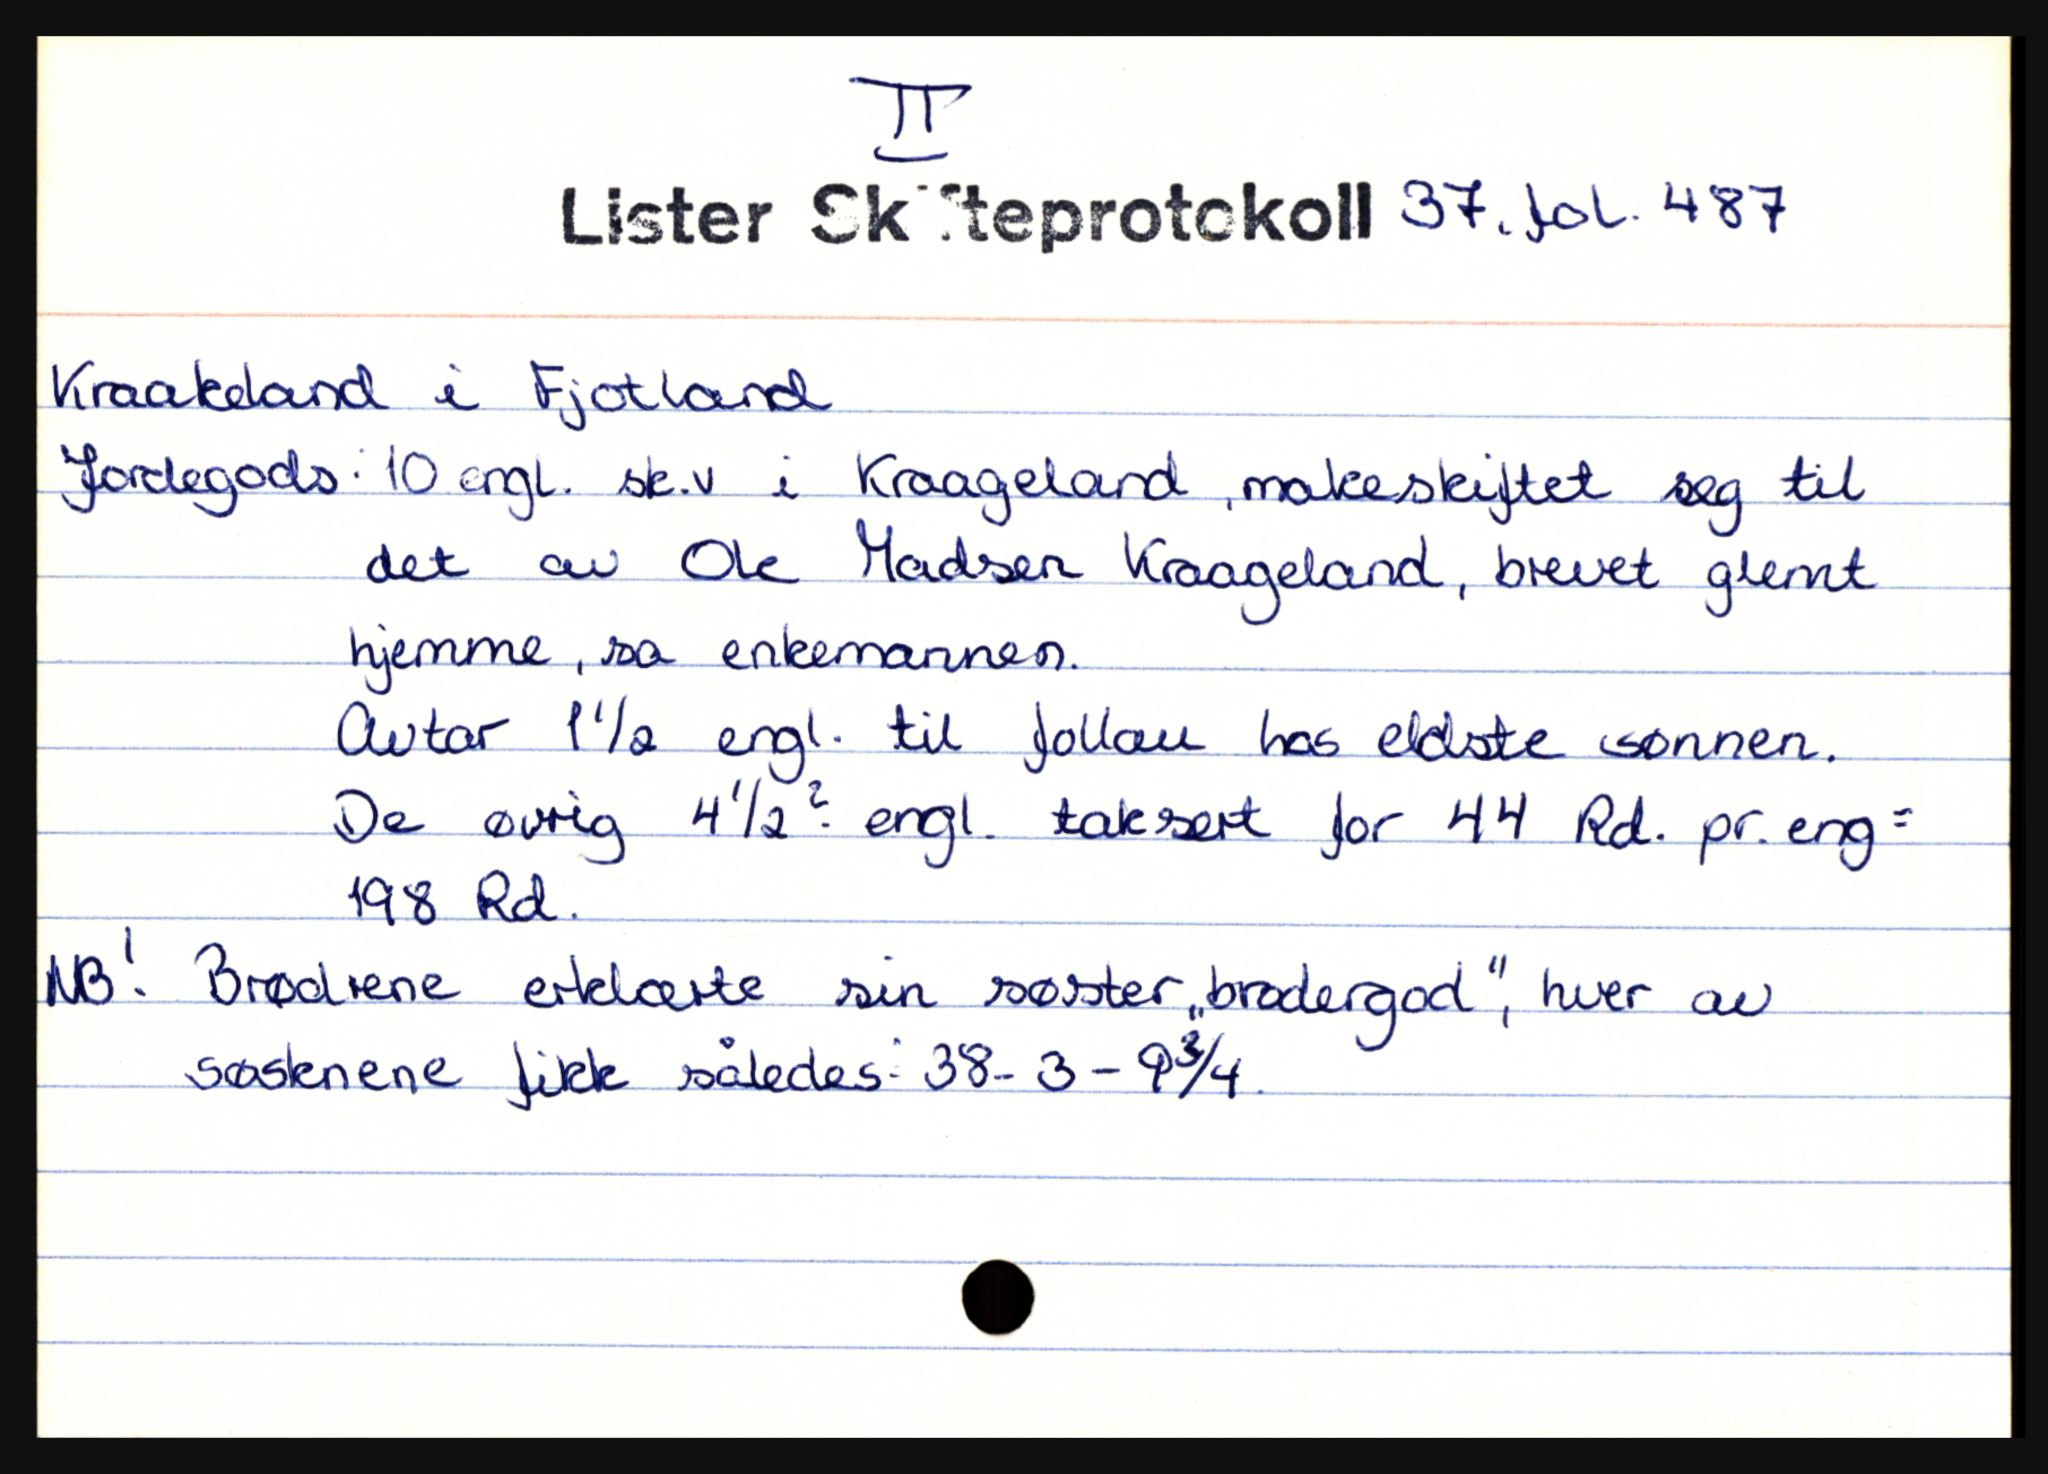 II
Lister Skifteprotokoll 37. fol. 487
Kraakeland i Fjotland
Jordegods: 10 engl. sk.v i Kraageland, makeskiftet seg til
det av Ole Madsen Kraageland, brevet glemt
hjemme, sa enkemannen.
Avtar 1 1/2 engl. til follau hos eldste sønnen.
De øvrig 4 1/2? engl. taksert for 44 Rd. pr. eng =
198 Rd.
NB! Brødrene erklærte sin søster „brodergod", hver av
søsknene fikk således: 38 - 3 - 9 3/4.